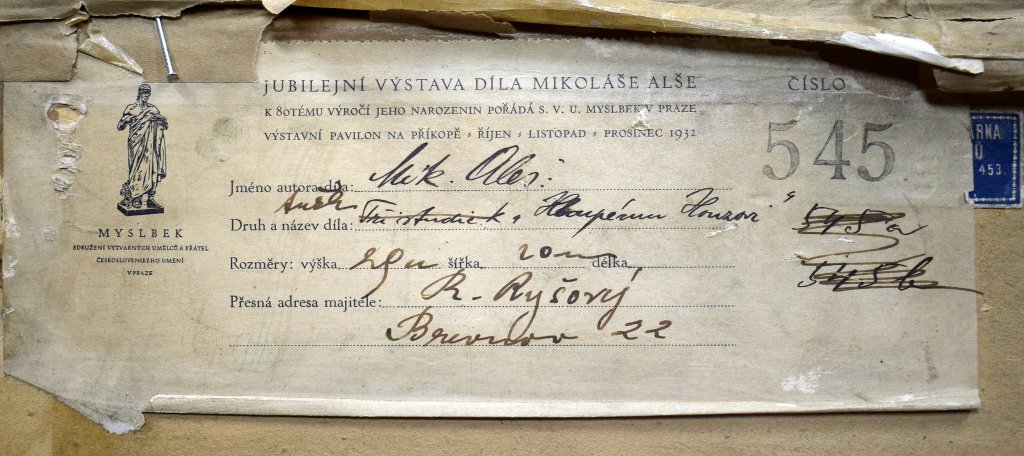 JUBILEJNÍ VÝSTAVA DÍLA MIKOLÁŠE ALŠE
ČÍSLO
K 80TÉMU VÝROČÍ JEHO NAROZENIN POŘÁDÁ S. V. U. MYSLBEK V PRAZE
VÝSTAVNÍ PAVILON NA PŘÍKOPĚ - ŘÍJEN - LISTOPAD - PROSINEC 1932
545
RNA
Ů
453.
MYSLBEK
SDRUŽENÍ VÝTVARNÝCH UMĚLCŮ A PŘÁTEL
ČESKOSLOVENSKÉHO UMĚNÍ
V PRAZE
Jméno autora díla: Mik. Aleš.
Druh a název díla: Tři studie k „Hloupému Honzovi“
545 a
Rozměry: výška šířka 20 cm délka
545 b
Přesná adresa majitele: R. Ryšový
Břevnov 22